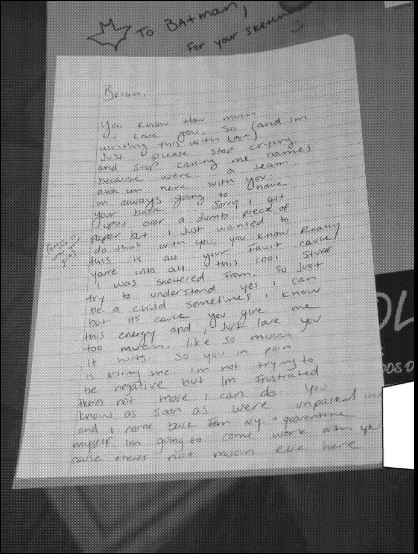 To BAtman,
For your sketch
Brian,
You know how much
I love you. So (and im
writing this with love)
Just please stop crying
and stop calling me names
because were a team
and im here with you.
im always going to have
your back. Sorry I got
upset over a dumb piece of
paper but I just wanted to
do that with you, you know. Really
this is all your fault cause
youre into all this cool stuff
I was sheltered from. So just
try to understand yes I can
be a child sometimes I know
but its cause you give me
this energy and I just love you
too much, like so much
it hurts. So you in pain
is killing me im not trying to
be negative but Im frustrated
theres not more I can do. You
know as soon as were unpacked
and I come back from N.Y. + quarantine
myself im going to come work with
cause theres not much else here
OL
OOS D